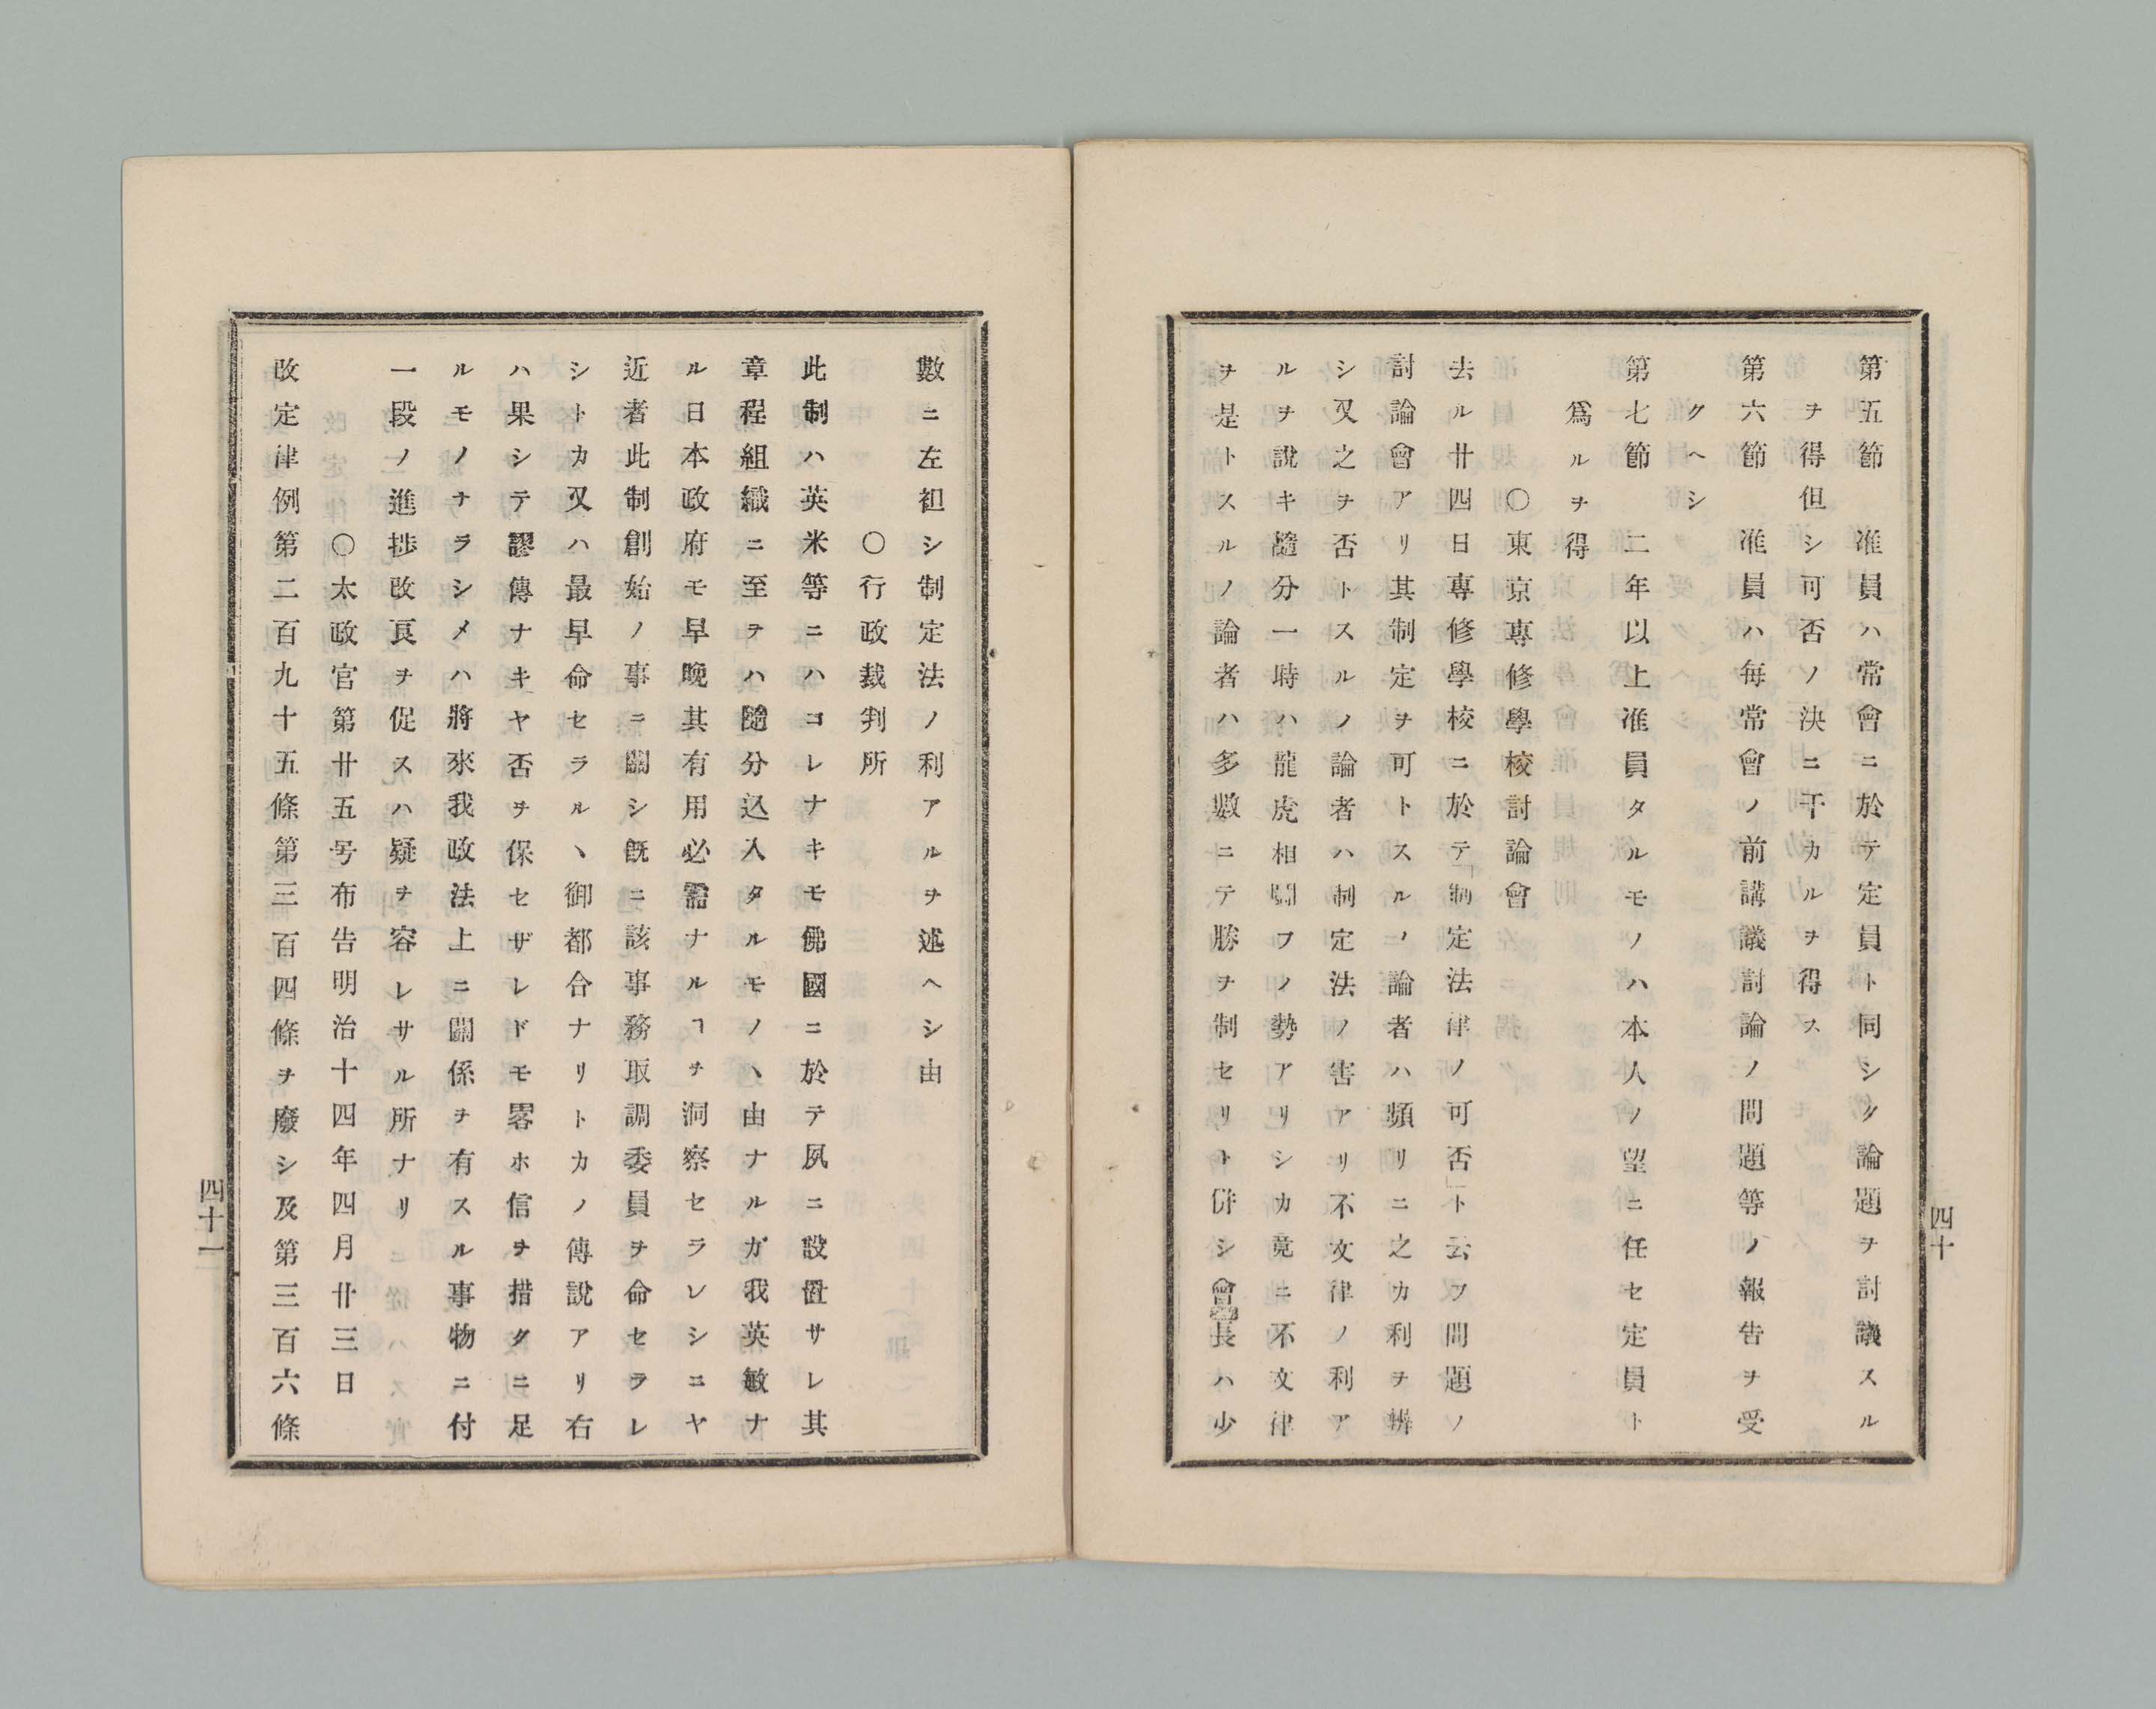 第五節　准員ハ常會ニ於テ定員ト同シク論題ヲ討議スル
ヲ得但シ可否ノ決ニ干カルヲ得ス
第六節　准員ハ毎常會ノ前講議討論ノ問題等ノ報告ヲ受
クヘシ
第七節　二年以上准員タルモノハ本人ノ望ニ任セ定員ト
爲ルヲ得
〇東京專修學校討論會
去ル廿四日專修學校ニ於テ「制定法律ノ可否」ト云フ問題ノ
討論會アリ其制定ヲ可トスルノ論者ハ頻リニ之カ利ヲ辨
シ又之ヲ否トスルノ論者ハ制定法ノ害アリ不文律ノ利ア
ルヲ說キ隨分一時ハ龍虎相鬪フノ勢アリシカ竟ニ不文律
ヲ是トスルノ論者ハ多數ニテ勝ヲ制セリト併シ會長ハ少
四十
數ニ左袒シ制定法ノ利アルヲ述ヘシ由
〇行政裁判所
此制ハ英米等ニハコレナキモ佛國ニ於テ夙ニ設置サレ其
章程組織ニ至テハ隨分込入タルモノヽ由ナルガ我英敏ナ
ル日本政府モ早晩其有用必需ナルヿヲ洞察セラレシニヤ
近者此制創始ノ事ニ關シ既ニ該事務取調委員ヲ命セラレ
シトカ又ハ最早命セラルヽ御都合ナリトカノ傳說アリ右
ハ果シテ謬傳ナキヤ否ヲ保セザレドモ畧ホ信ヲ措クニ足
ルモノナラシメハ將來我政法上ニ關係ヲ有スル事物ニ付
一段ノ進捗改良ヲ促スハ疑ヲ容レサル所ナリ
〇太政官第廿五号布告明治十四年四月廿三日
改定律例第二百九十五條第三百四條ヲ廢シ及第三百六條
四十一